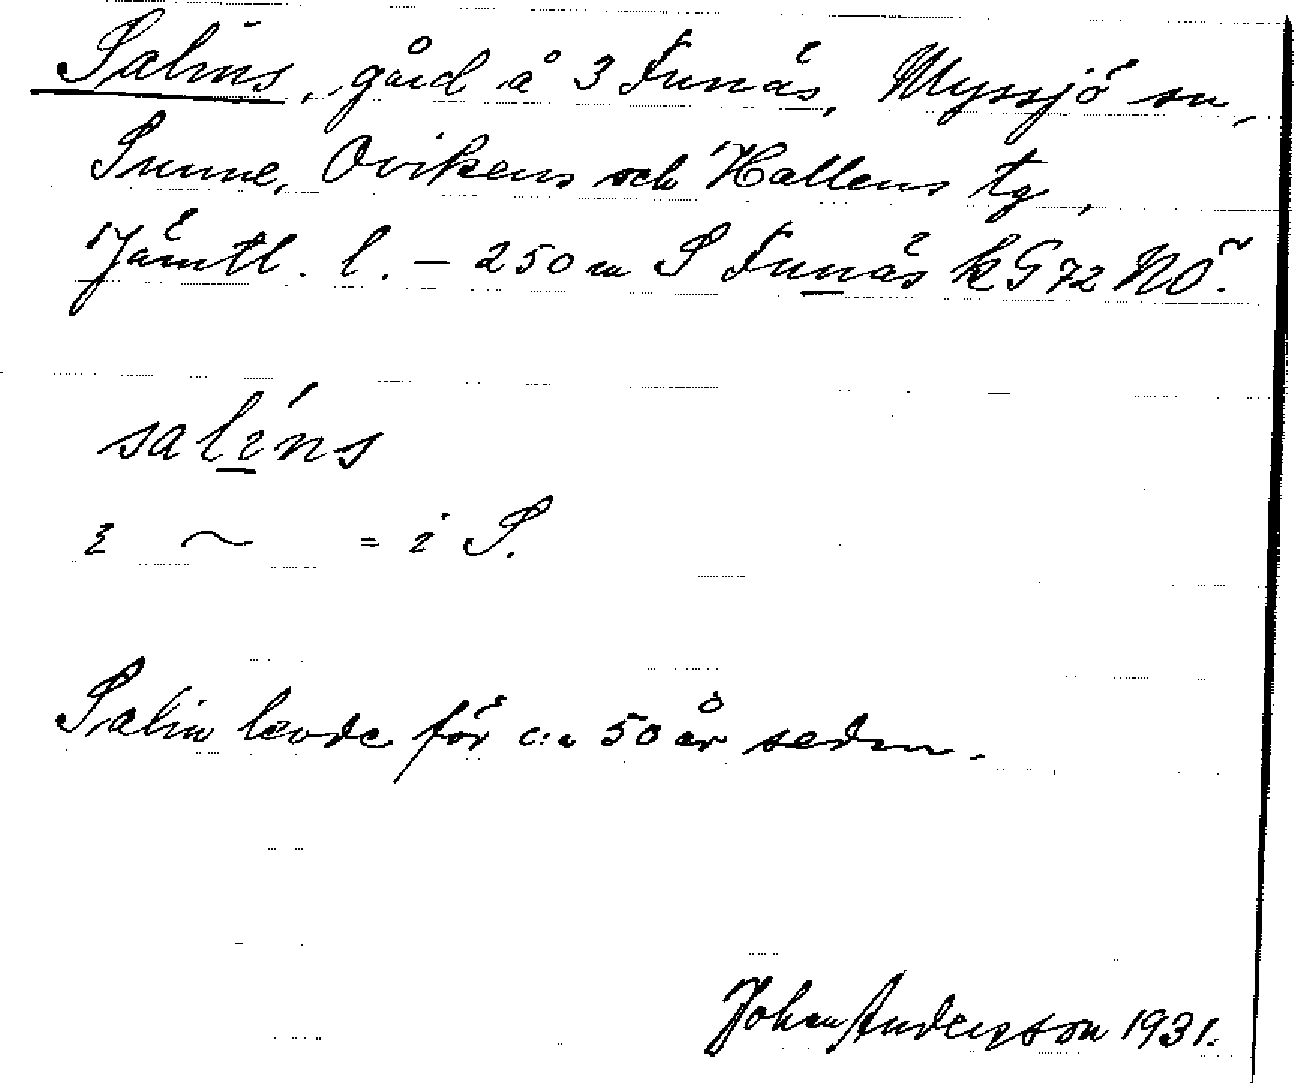 Salins, gård å 3 Funäs, Myssjö sn,
Sunne, Ovikens och Hallens tg,
Jämtl. l. – 250 m S Funäs kG 72 NÖ.
salíns
i ~ = i S.
Salin levde för c:a 50 år sedan.
Johan Anderson 1931.